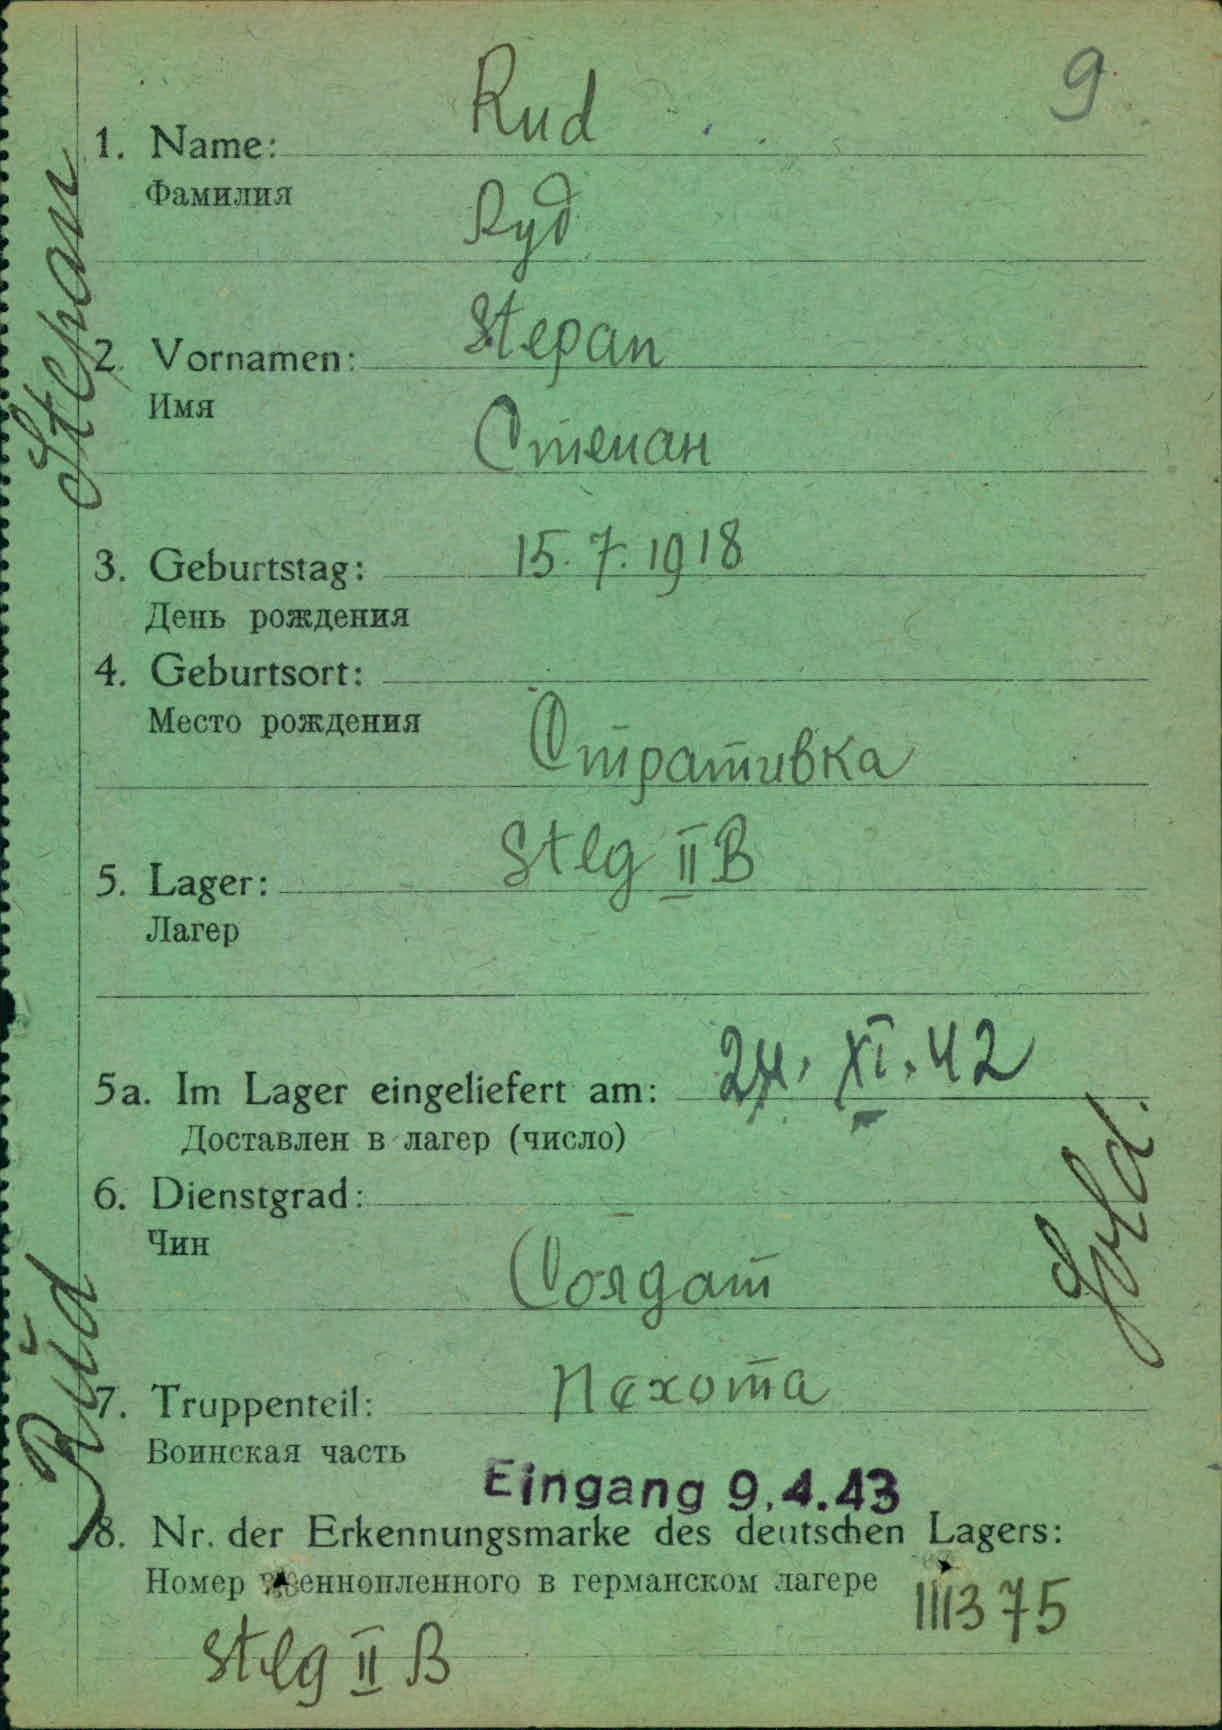 9
Rud
1. Name:
Фамилия
Руд
Stepan
2. Vornamen:
Имя
Степан
15.7.1918
3. Geburtstag:
День рождения
4. Geburtsort:
Место рождения
Стративка
Stlg II B
5. Lager:
Лагер
5a. Im Lager eingeliefert am: XI.42
Доставлен в лагер (число)
6. Dienstgrad:
Чин
Солдат
7. Truppenteil: Пехота
Воинская часть
Eingang 9.4.43
8. Nr. der Erkennungsmarke des deutschen Lagers:
Номер военнопленного в германском лагере
Stlg II B
Stepan
Rud
Sold.